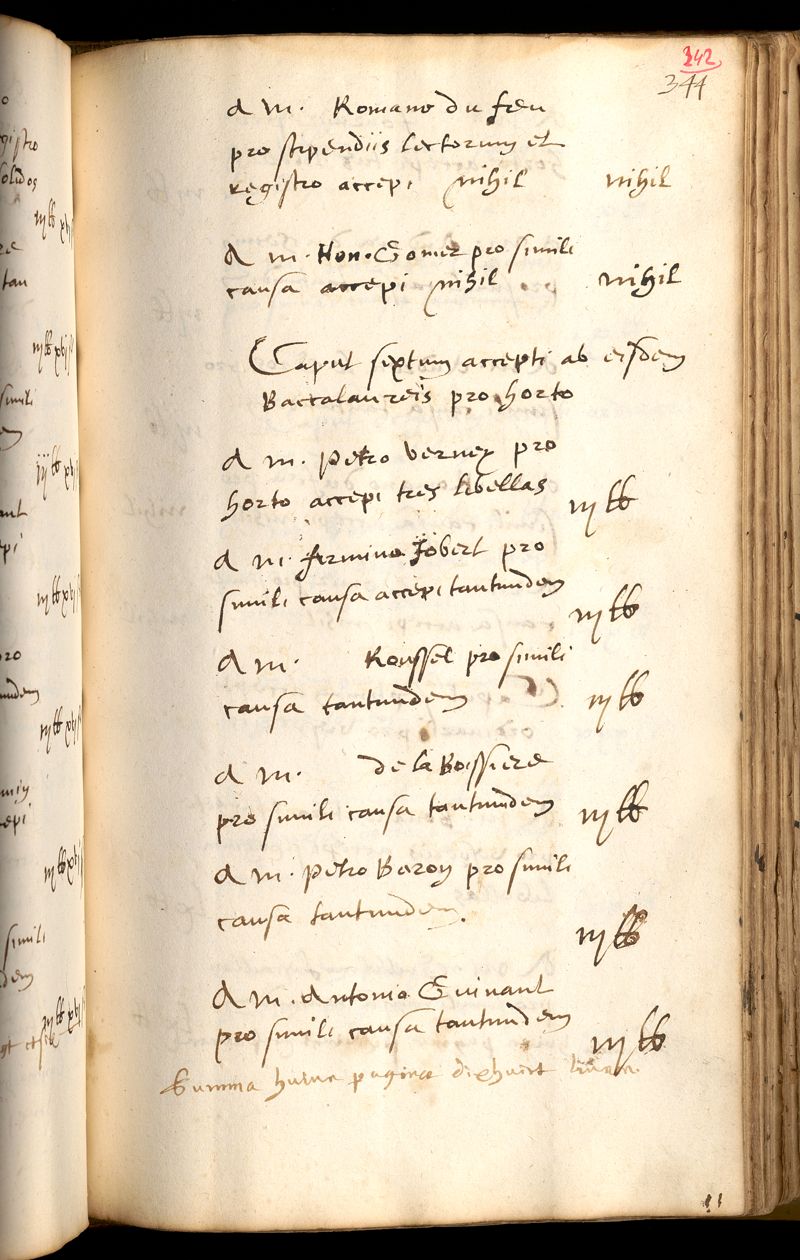 242
344
A m. Romano du feu
pro stipendiis lectorum et
registro accepi nihil nihil
A m. Hon. Gomer pro simili
causa accepi nihil nihil
Caput sextum accepti ab eisdem
Baccalaureis pro horto
A m. Petro Verney pro
horto accepi tres libellas iij ll
A m. firmino Jobert pro
simili causa accepi tantundem iij ll
A m. Roussel pro simili
causa tantundem iij ll
A m. de la Boissiere
pro simili causa tantundem iij ll
A m. Petro Baron pro simili
causa tantundem. iij ll
A m. Antonio Guinant
pro simili causa tantundem iij ll
Summa huius paginae dixhuict